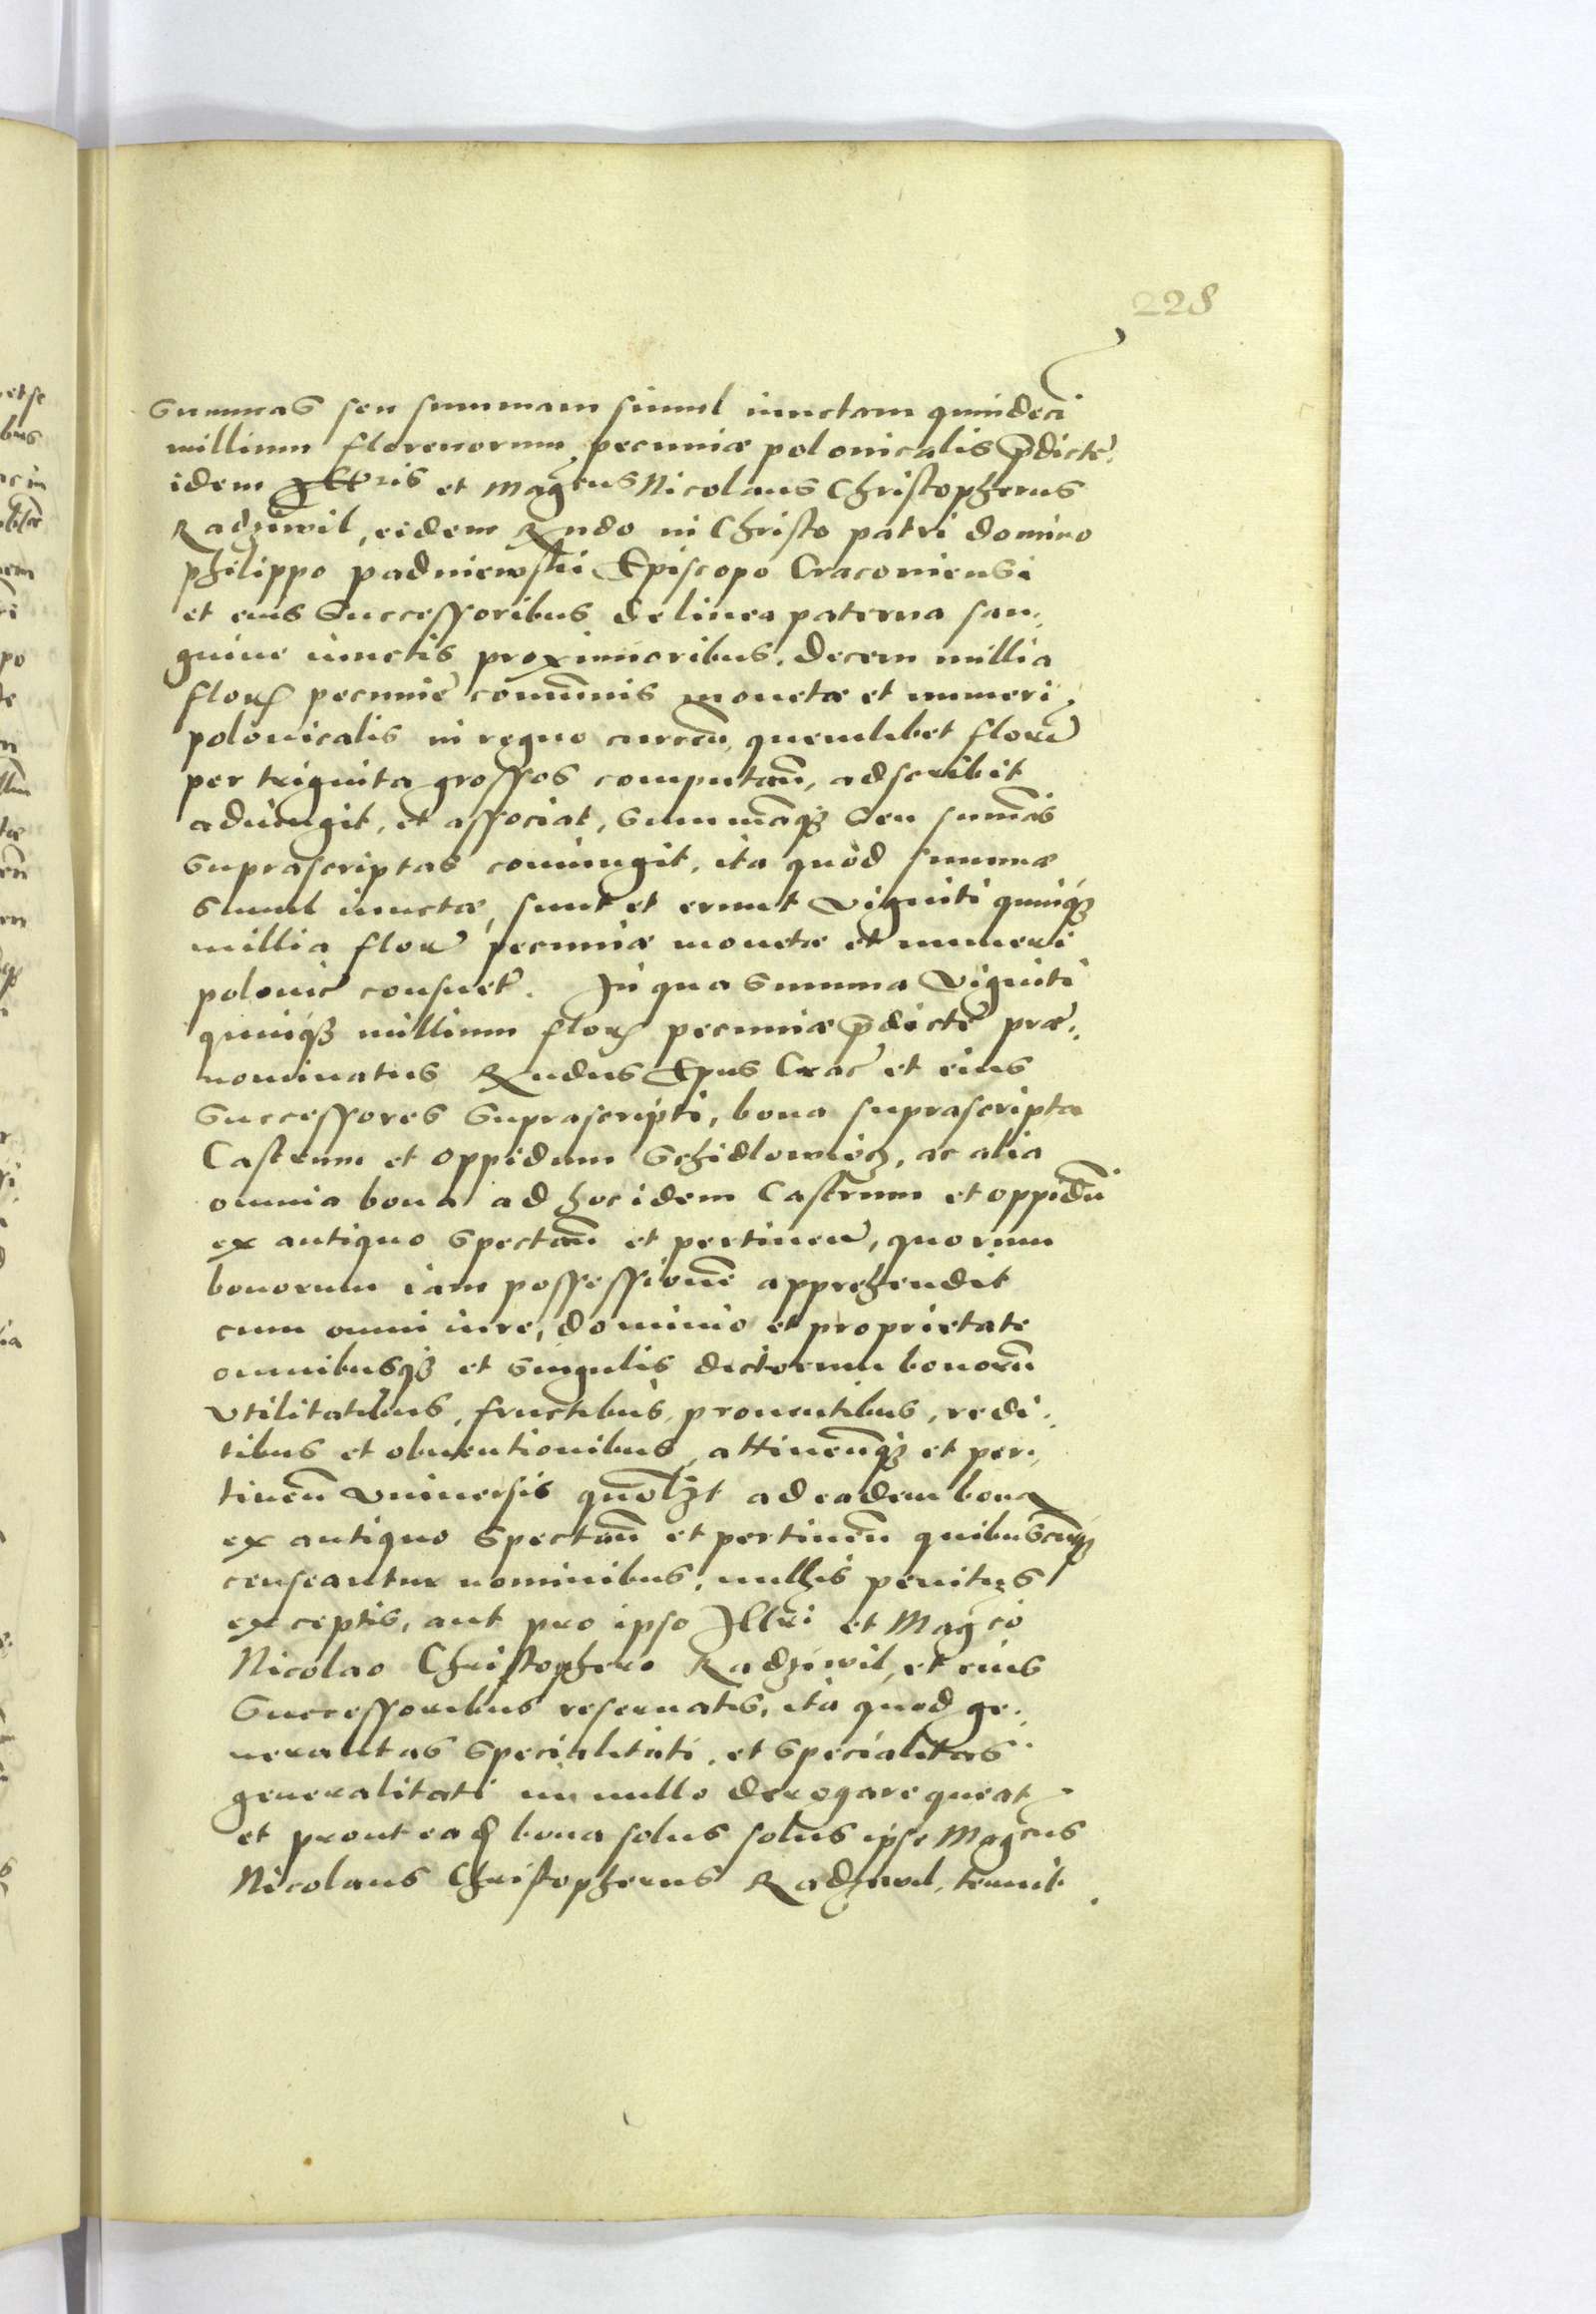 228
summas seu summam simul iunctam quindecī
millium florenorum pecuniæ polonicalis p̄dictę
idem Illtris et Magcus Nicolaus Christopherus
Radziwil, eidem Rndo in Christo patri domino
philippo padniewskii Episcopo Cracouiensi
et eius Successoribus de linea paterna san,
guine iunctis proximioribus, decem millia
flor pecunię comūnis monetæ et numeri
polonicalis in regno curren, quemlibet flore
per triginta grossos computan̄, adscribit
adiungit, et associat, summāq3 seu summās
suprascriptas coniungit, ita quòd summæ
simul iunctæ, sunt et erunt viginti quinq3
millia flore pecuniæ monetæ et numeri
polonic consuet. In qua summa viginti
quinq3 millium flor pecuniæ p̄dictę præ,
nominatus Rndus Epus Crac et eius
successores suprascripti, bona suprascripta
Castrum et oppidum Schidlowiecz, ac alia
omnia bona ad hoc idem Castrum et oppidū
ex antiquo spectan̄ et pertinen, quorum
bonorum iam possessionē apprehendit
cum omni iure, dominio et proprietate
omnibusq3 et singulis dictorum bonorū
vtilitatibus, fructibus, prouentibus, redi,
tibus et obuentionibus, attinen̄q3 et per,
tinen̄ vniuersis quol3t ad eadem bona
ex antiquo spectan̄ et pertinen̄ quibuscūq3
censeantur nominibus, nullis penitus
exceptis, aut pro ipso Illri et Magco
Nicolao Christophero Radziwil, et eius
Successoribus reseruatis, ita quod ge,
neralitas specialitati, et specialitas
generalitati in nullo derogare queat
et prout ead bona solus solus ipse Magcus
Nicolaus Christopherus Radziwil, tenuit